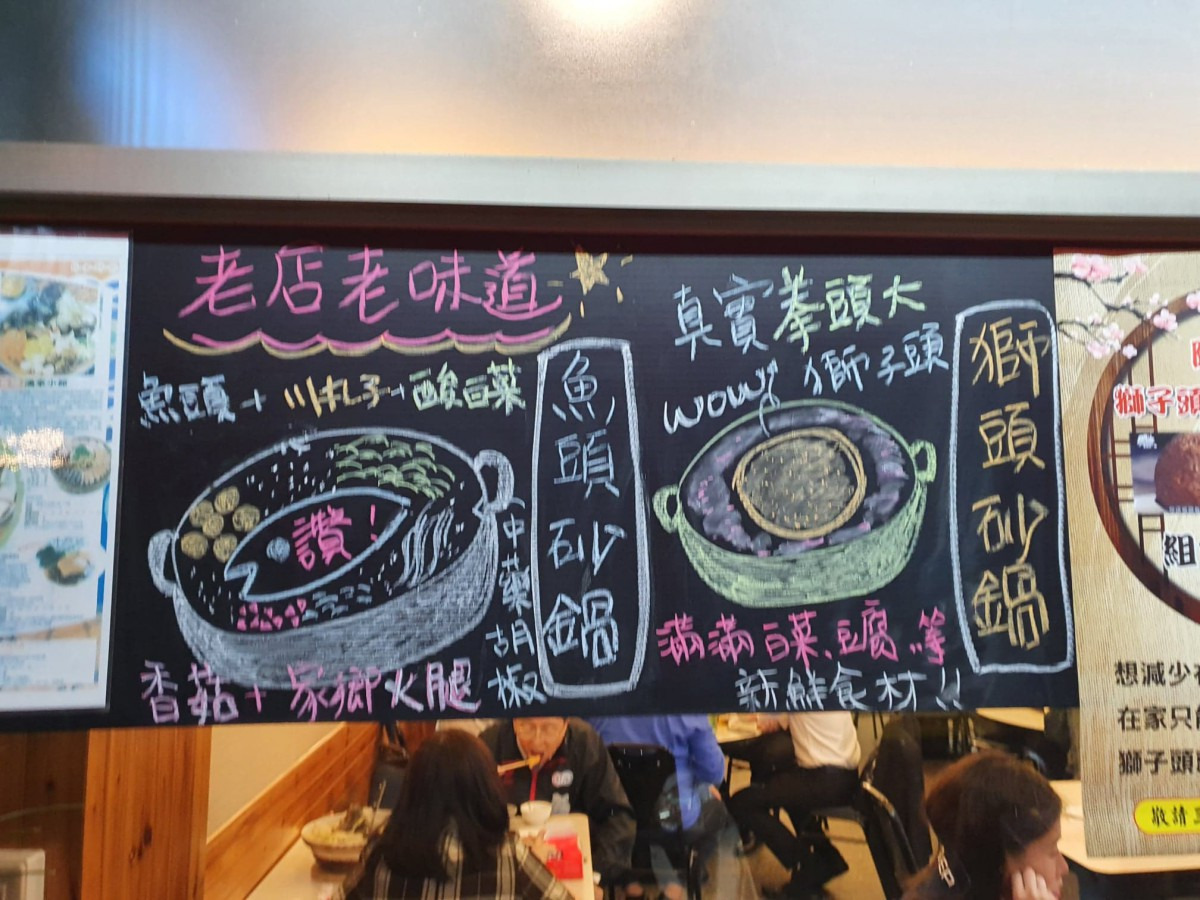 老店老味道
魚頭+川丸子+酸白菜
讚!
中藥胡椒
香菇+家鄉火腿
魚頭砂鍋
真實拳頭大
獅子頭
wow!
滿滿白菜、豆腐..等
新鮮食材!!
獅頭砂鍋
獅子頭
組
想減少
在家只
獅子頭
敬請